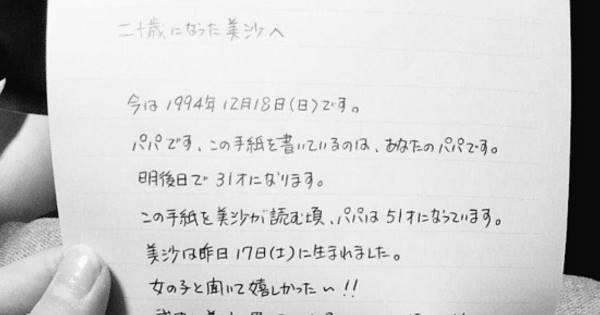 二十歳になった美沙へ
今は1994年12月18日(日)です。
パパです、この手紙を書いているのは、あなたのパパです。
明後日で31才になります。
この手紙を美沙が読む頃、パパは51才になっています。
美沙は昨日17日(土)に生まれました。
女の子と聞いて嬉しかったい!!